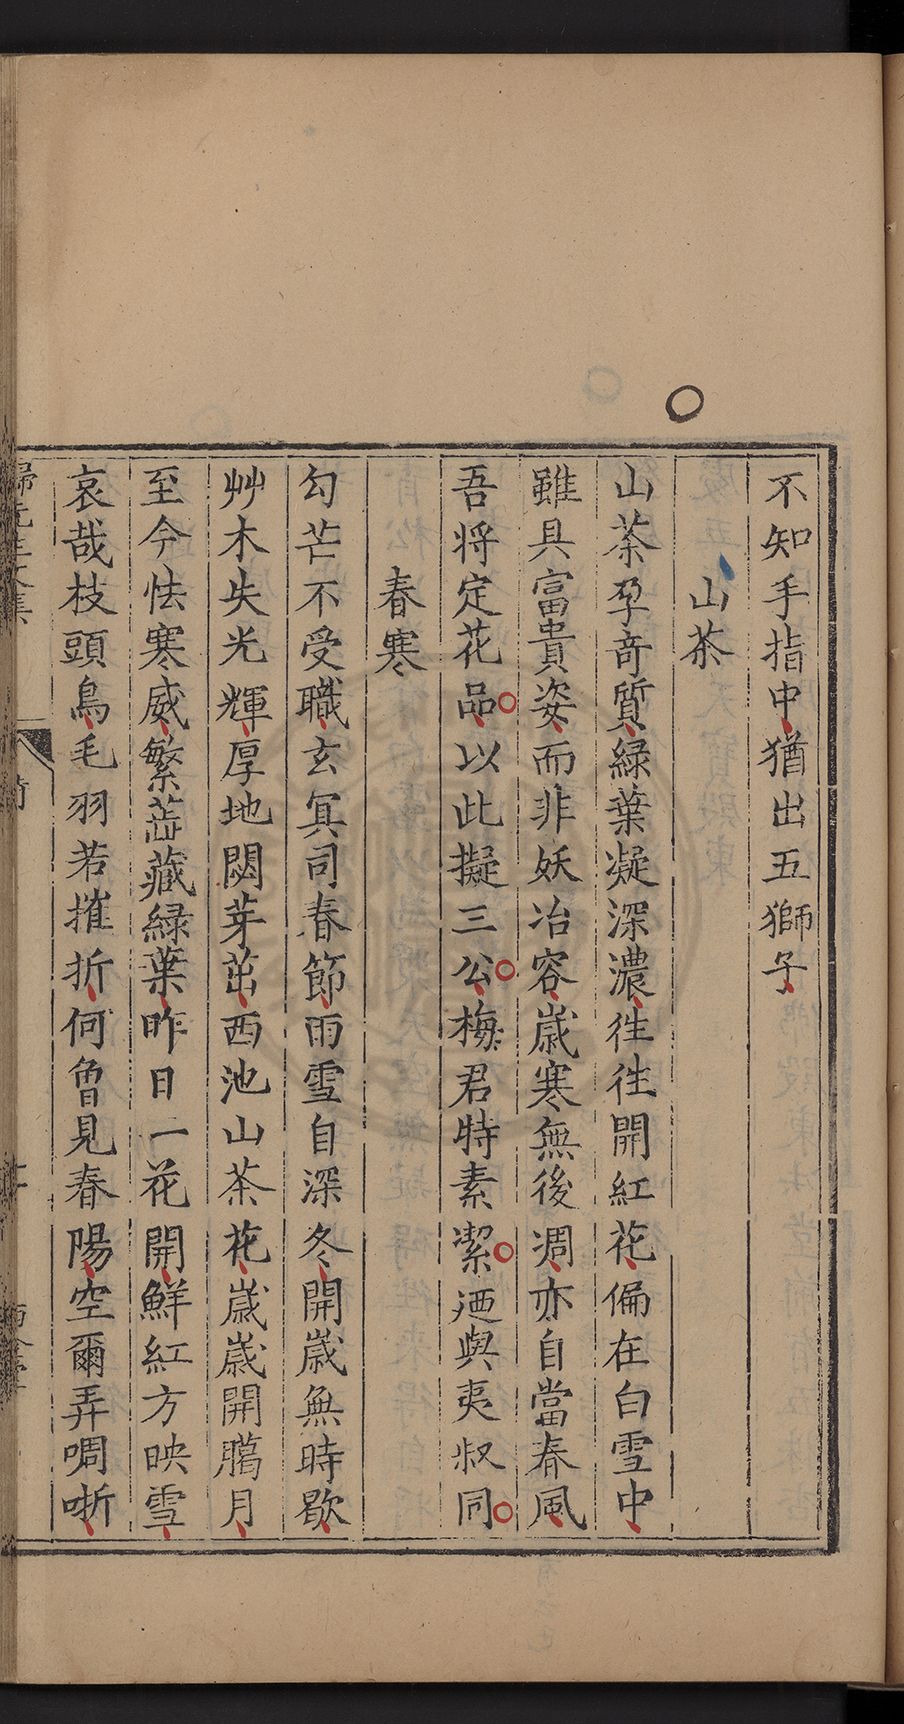 不知手指中猶出五獅子
山茶
山茶孕竒質綠葉凝深濃徃徃開紅花偏在白雪中
雖具富貴姿而非妖冶容歲寒無後凋亦自當春風
吾將定花品以此擬三公梅君特素潔迺與夷叔同
春寒
勾芒不受職玄冥司春節雨雪自深冬開歲無時歇
艸木失光輝厚地閟芽茁西池山茶花歲歲開臈月
至今怯寒威繁蘂藏綠葉昨日一花開鮮紅方映雪
哀哉枝頭鳥毛羽若摧折何曾見春陽空爾弄啁哳